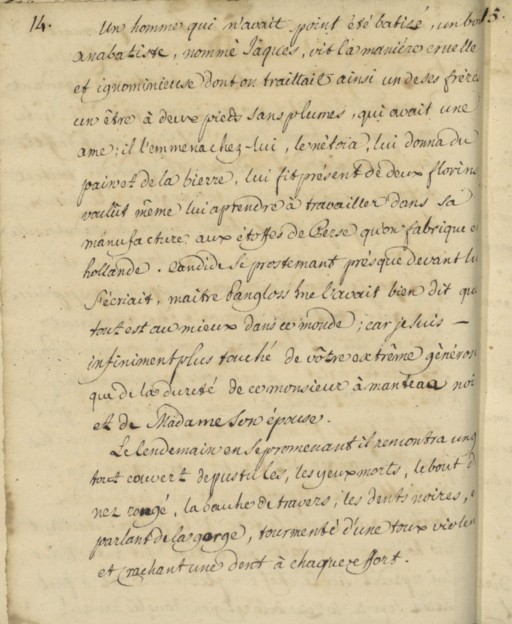 14. 15.
un homme qui n'avait point été batisé, un bo
anabatiste, nommé Jâques, vit la maniére cruelle
et ignominieuse dont on traittait ainsi un de ses frére
un être à deux pieds sans plumes, qui avait une
ame; il l'emmena chez-lui, le nétoïa, lui donna du
pain et de la bierre, lui fit présent de deux florins
voulût même lui aprendre à travailler dans sa
manufacture aux étoffes de Perse qu'on fabrique e
hollande. Candide se prosternant presque devant lu
s'écriait, maître Pangloss me l'avait bien dit que
tout est au mieux dans ce monde; car je suis —
infiniment plus touché de vôtre extrême générosi
que de la dureté de ce monsieur à manteau noi
et de Madame son épouse.
Le lendemain en se promenant il rencontra un g
tout couvert de pustules, les yeux morts, le bout d
nez rongé, la bouche de travers, les dents noires, e
parlant de la gorge, tourmenté d'une toux violen
et crachant une dent à chaque effort.